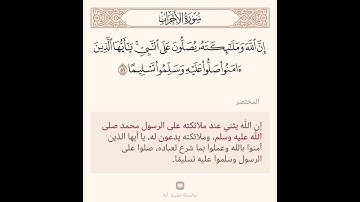 سُورَةُ الأَحْزَابِ
إِنَّ ٱللَّهَ وَمَلَٰٓئِكَتَهُۥ يُصَلُّونَ عَلَى ٱلنَّبِيِّۚ يَٰٓأَيُّهَا ٱلَّذِينَ
ءَامَنُواْ صَلُّواْ عَلَيۡهِ وَسَلِّمُواْ تَسۡلِيمًا ٥٦
المختصر
إن الله يثني عند ملائكته على الرسول محمد صلى
الله عليه وسلم، وملائكته يدعون له، يا أيها الذين
آمنوا بالله وعملوا بما شرع لعباده، صلوا على
الرسول وسلموا عليه تسليمًا.
بواسطة تطبيق آية